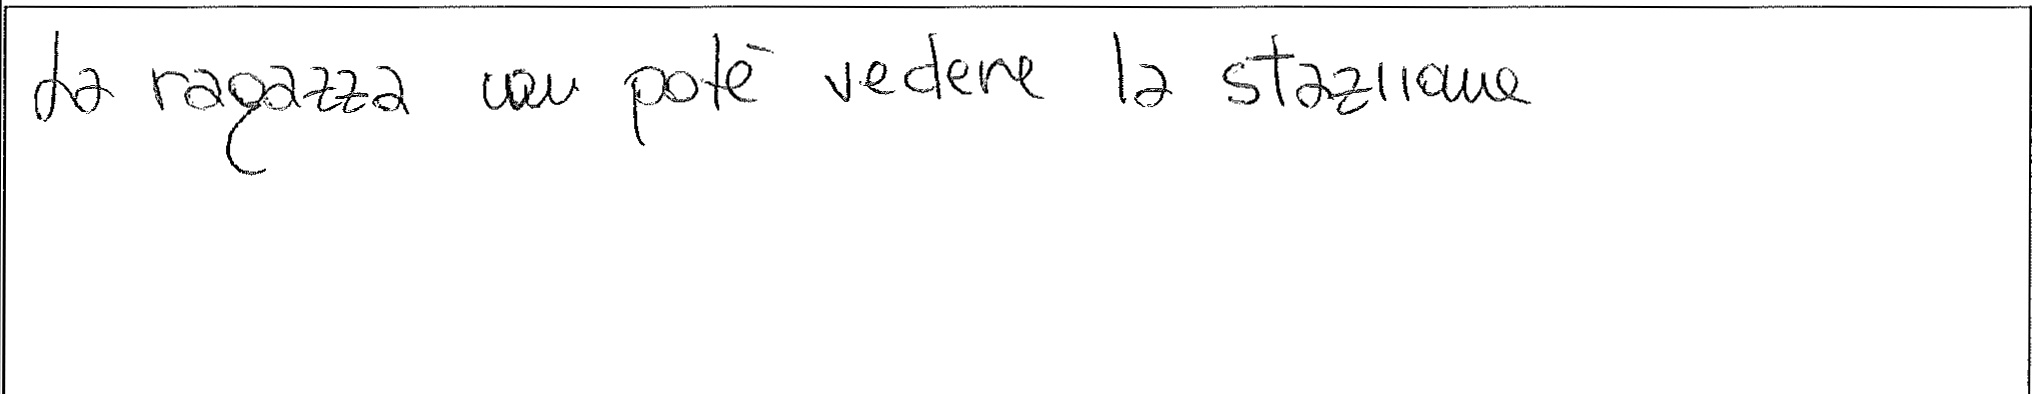 La ragazza non potè vedere la staziione